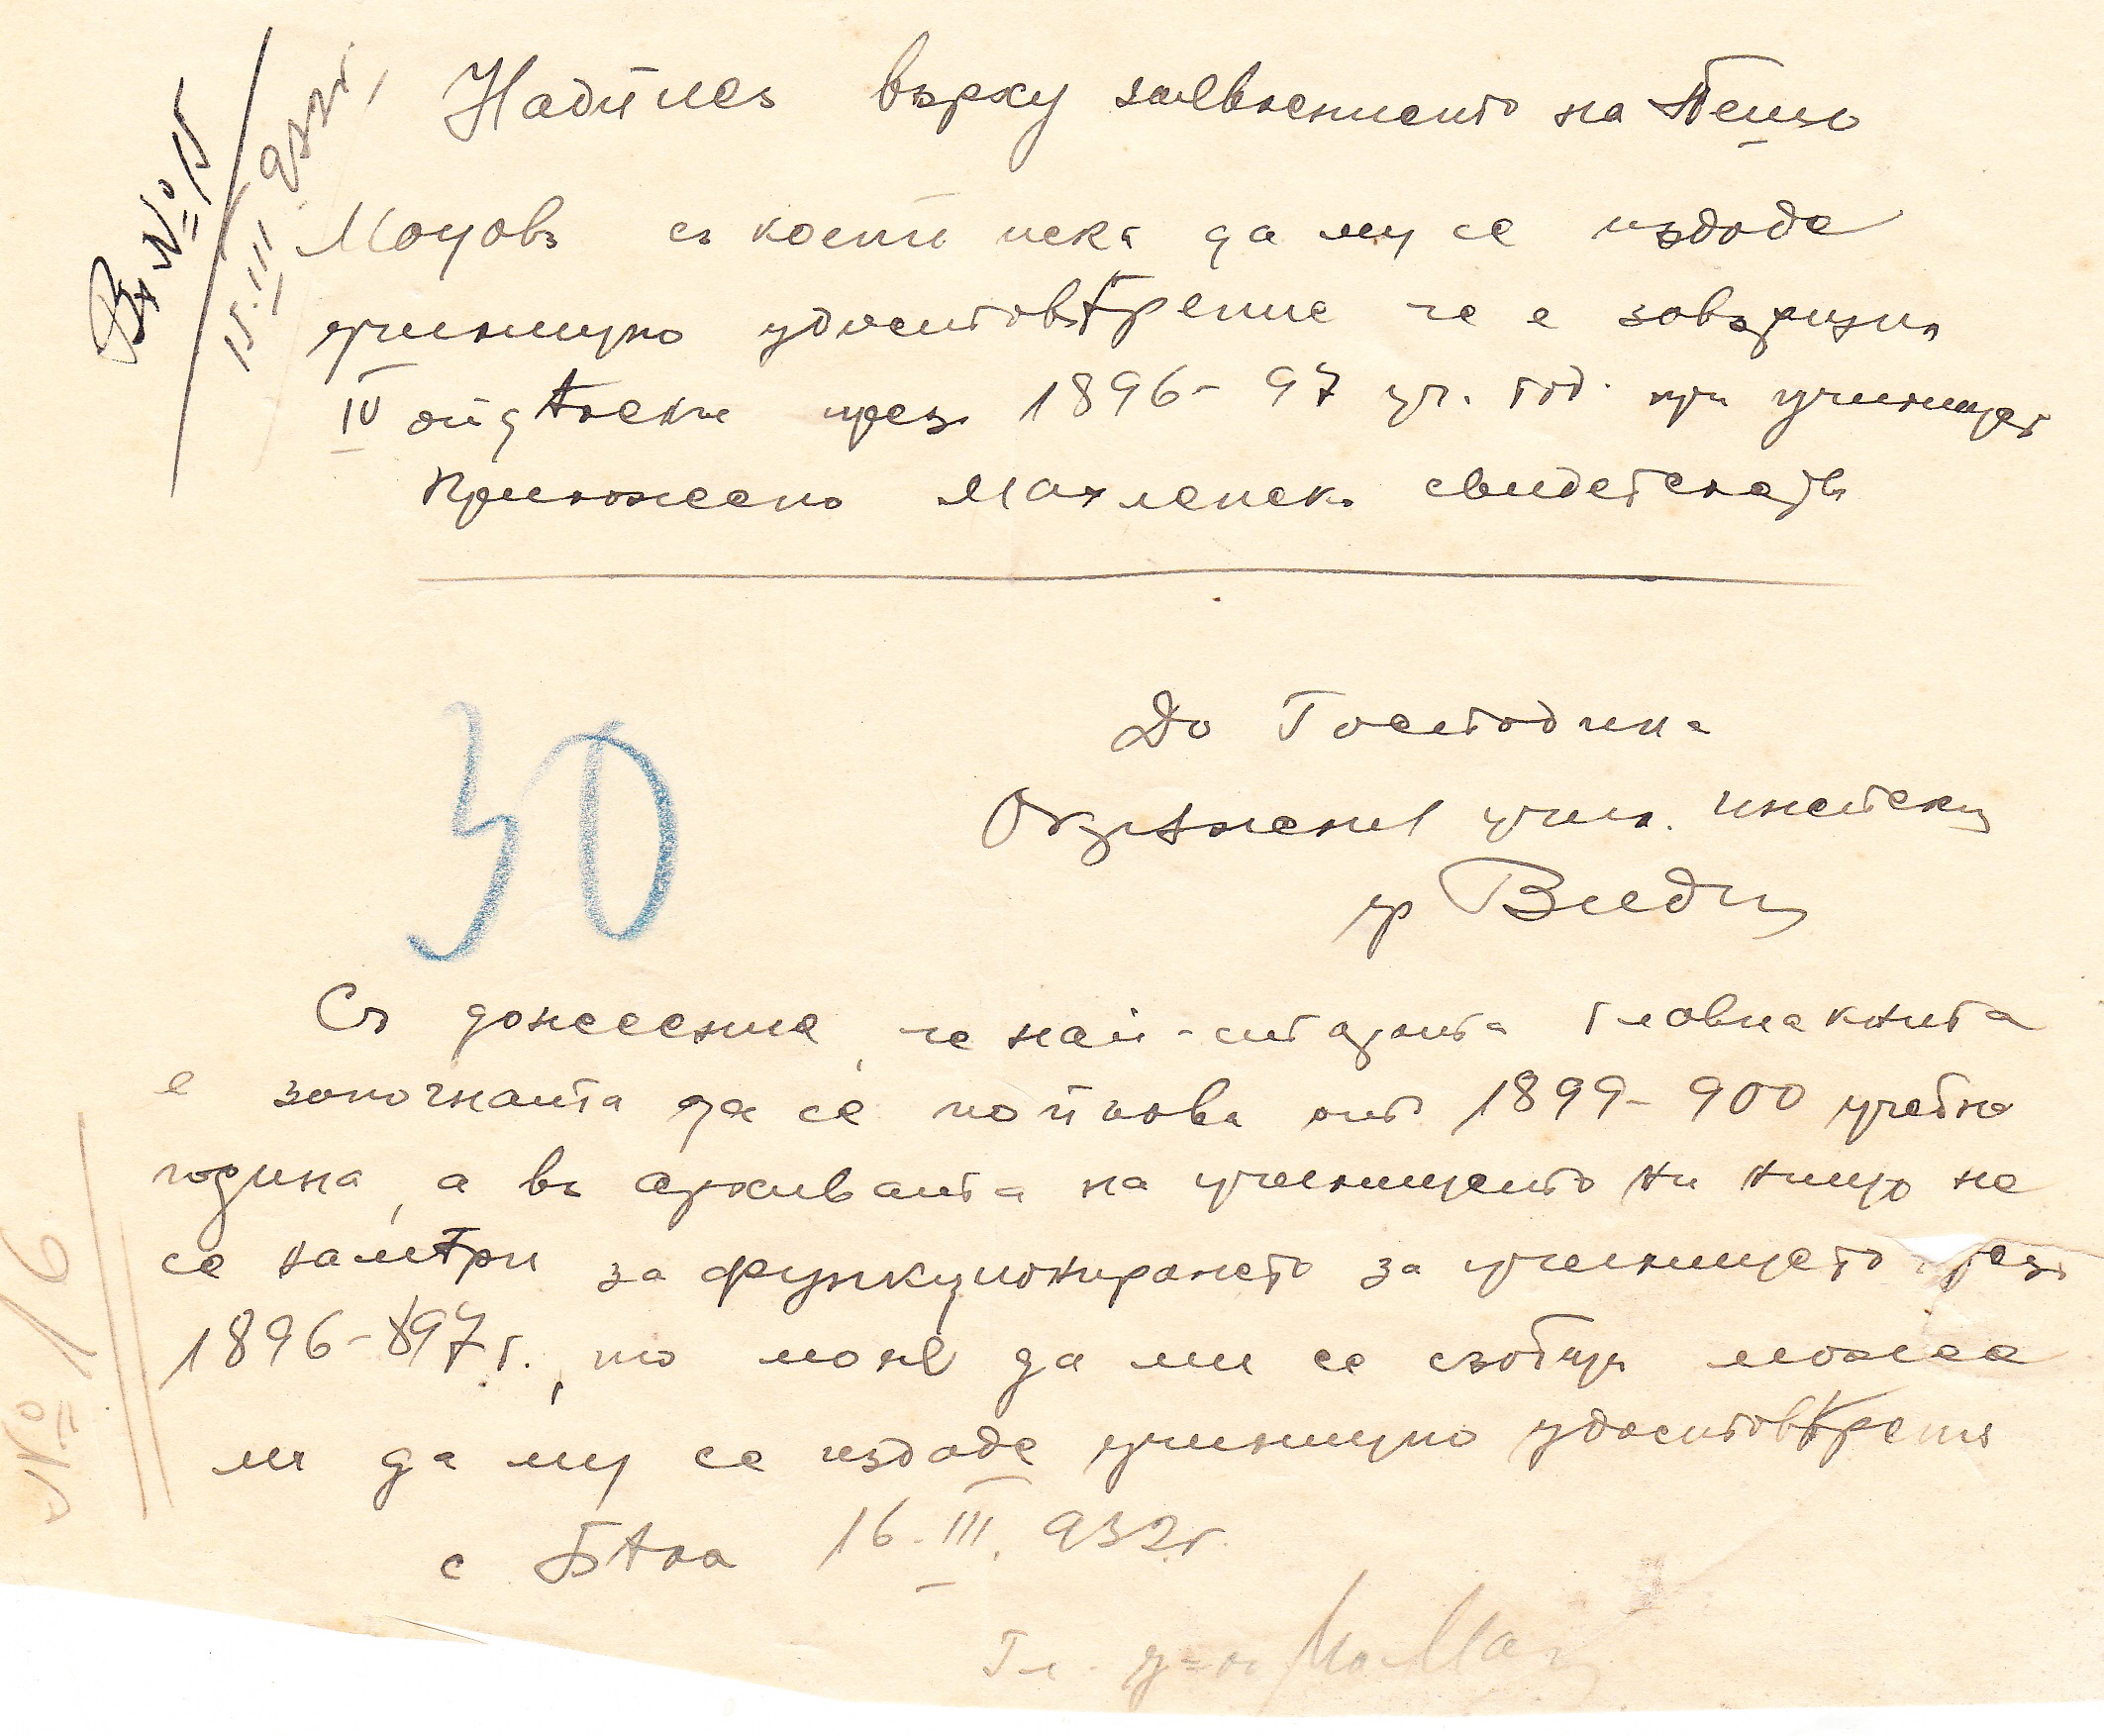 Вх. № 15
15.III 932 г.
Надпис върху заявлението на Пешо
Моцовъ съ което иска да му се издаде
училищно удостовѣрение че е завършил
IV отдѣление през 1896-97 уч. год. при училището
Приложено Махленско свидетелство
До Господина
Окръжния учил. инспектор
гр Видин
30
Съ донесение, че най-старата главна книга
е започната да се попълва от 1899-900 учебна
година, а въ архивата на училището ни нищо не
се намѣри за функционирането за училището през
1896-897 г., то моля да ми се съобщи може
ли да му се издаде училищно удостовѣрение
№ 16
с Бѣла 16.III.932 г.
Гл. у-л